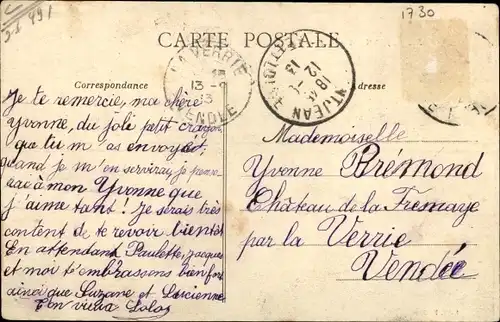 1730
CARTE POSTALE
LA VERRIE
13 -
13
VENDÉE
ST JEAN
18
12 -
13
Correspondance
Adresse
Je te remercie, ma chère
Yvonne, du joli petit crayon
que tu m'as envoyé,
quand je m'en servirai je pense
rai à mon Yvonne que
j'aime tant! Je serais très
content de te revoir bientôt
En attendant Paulette, Jacques
et moi t'embrassons bien fort
ainsi que Suzane et Lucienne
Ton vieux Lolo
Mademoiselle
Yvonne Brémond
Château de la Fremaye
par la Verrie
Vendée